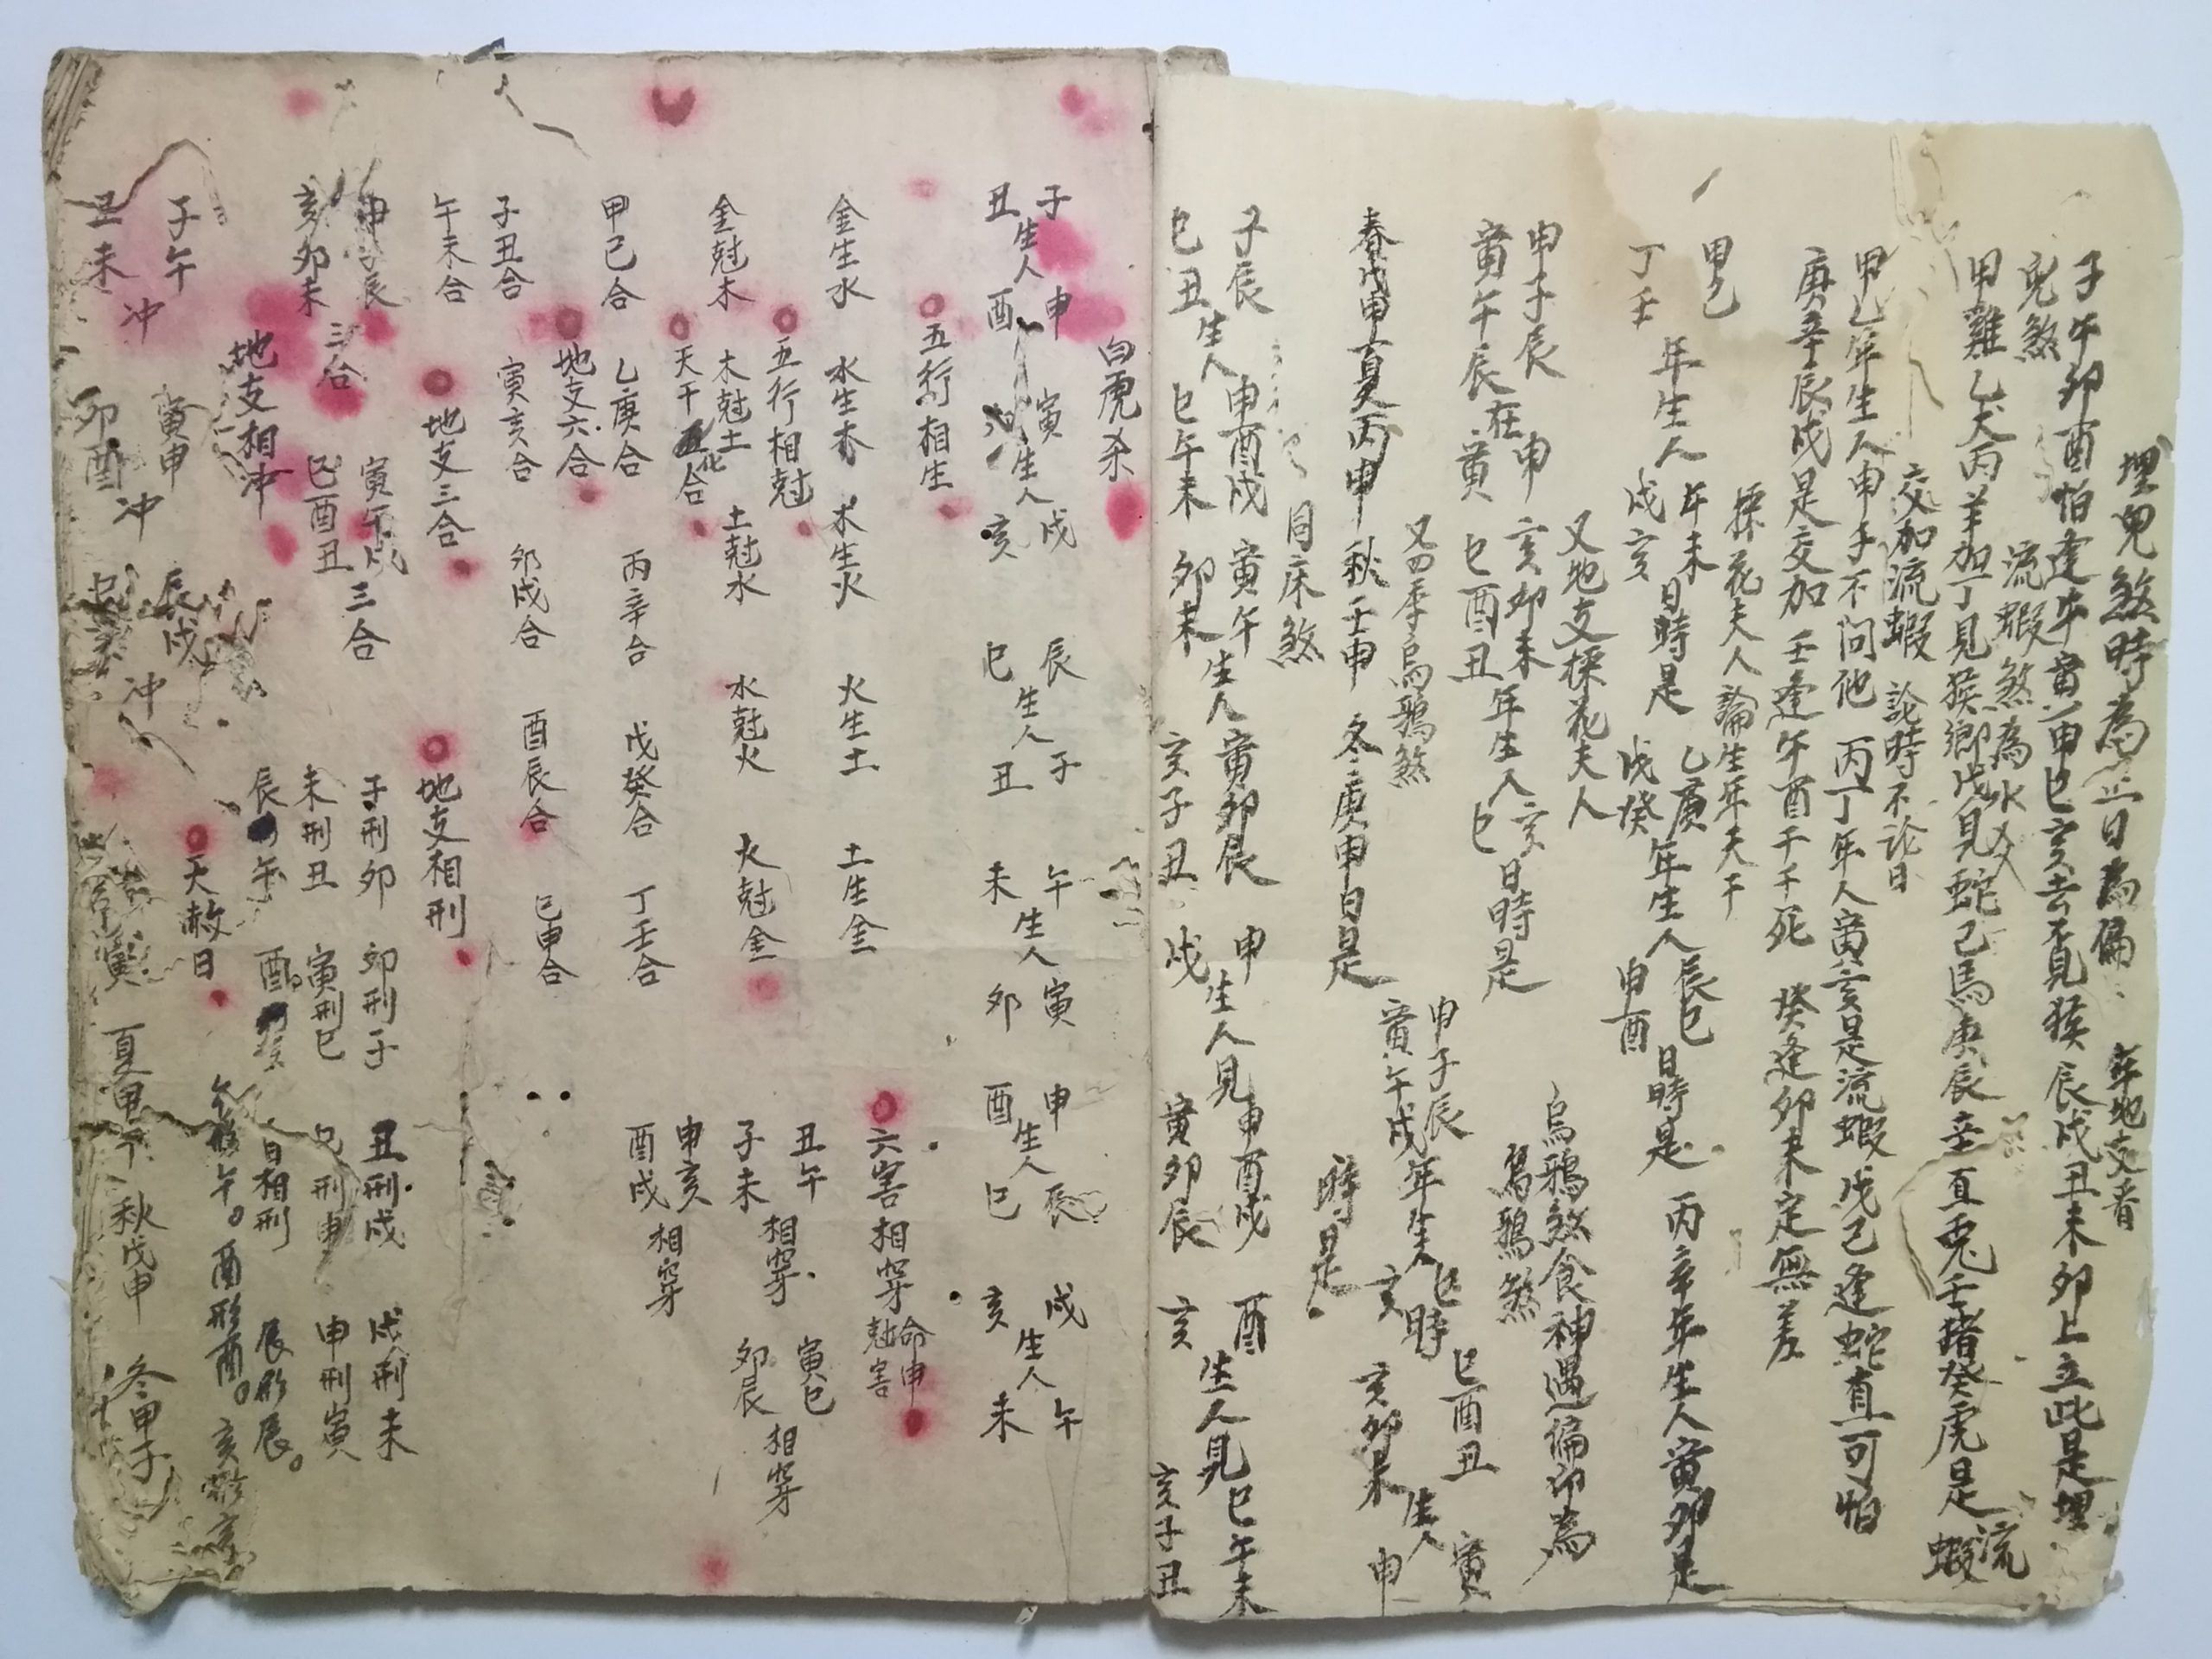 埋兒煞時為正日為偏 年地支看
子午卯酉怕逢牛寅申巳亥去不見猴辰戌丑未卯上立此是埋
兒煞
流蝦煞為水火
甲雞乙犬丙羊加丁見猴鄉戊見蛇己馬庚辰辛直兔壬猪癸虎是流
蝦
交加流蝦 論時不论日
甲乙年生人申子不問他 丙丁年人寅亥是流蝦戊己逢蛇直可怕
庚辛辰戌是交加 壬逢午酉千千死 癸逢卯未定無差
採花夫人論生年天干
甲己
丁壬
年生人
午未
戌亥
日時是
乙庚
戊癸
年生人
辰巳
申酉
日時是
丙辛年生人寅卯是
又地支採花夫人
申子辰
寅午辰
在
申
寅
亥卯未
巳酉丑
年生人
亥
巳
日時是
烏鴉煞食神遇偏印為
烏鴉煞
又四季烏鴉煞
春戊申夏丙申秋壬申冬庚申日是
申子辰
寅午戌
年生人
巳
亥
時
巳酉丑
亥卯未
生人
寅
申
時是
同床煞
子辰
巳丑
生人
申酉戌
巳午未
寅午
卯未
生人
寅卯辰
亥子丑
申
戌
生人見
申酉戌
寅卯辰
酉
亥
生人見
巳午未
亥子丑
白虎杀
子
丑
生人
申
酉
寅
生人
戌
亥
辰
巳
生人
子
丑
午
未
生人
寅
卯
申
酉
生人
辰
巳
戌
亥
生人
午
未
五行相生
金生水 水生木 木生火 火生土 土生金
五行相尅
金尅木 木尅土 土尅水 水尅火 火尅金
天干化合
甲己合 乙庚合 丙辛合 戊癸合 丁壬合
地支六合
子丑合 寅亥合 卯戌合 酉辰合 巳申合
午未合
六害相穿
命申
尅害
丑午
子未
相穿
寅巳
卯辰
相穿
申亥
酉戌
相穿
地支三合
申辰
亥卯未
三合
寅午戌
巳酉丑
三合
地支相刑
子刑卯 卯刑子 丑刑戌 戌刑未
未刑丑 寅刑巳 巳刑申 申刑寅
辰午 酉 自相刑 辰形辰。
午形午。酉形酉。亥形亥。
地支相冲
子午
丑未
冲
寅申
卯酉
冲
辰戌
巳亥
冲
天赦日
寅 夏甲午 秋戊申 冬甲子